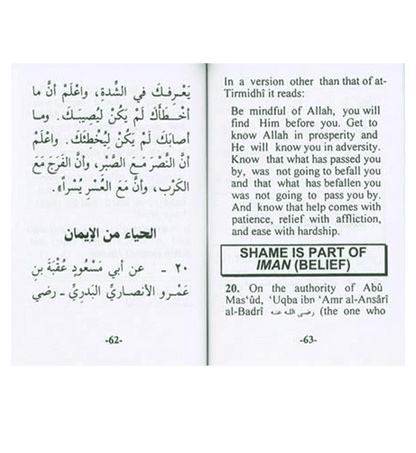 يَعْرِفكَ في الشِّدةِ، واعْلَمْ أنَّ ما
أخْطَأكَ لَمْ يَكُنْ لِيُصِيبَكَ. وما
أصابَكَ لَمْ يَكُنْ لِيُخْطِئَكَ. واعْلَمْ
أنَّ النَّصْرَ مَعَ الصَّبْرِ، وأنَّ الفَرَجَ مَعَ
الكَرْبِ، وأنَّ مَعَ العُسْرِ يُسْراً».
الحياء من الإيمان
٢٠ - عن أبي مَسْعُودٍ عُقْبَةَ بنِ
عَمْرو الأنصاريِّ البَدريِّ - رضي
-62-
In a version other than that of at-
Tirmidhî it reads:
Be mindful of Allah, you will
find Him before you. Get to
know Allah in prosperity and
He will know you in adversity.
Know that what has passed you
by, was not going to befall you
and that what has befallen you
was not going to pass you by.
And know that help comes with
patience, relief with affliction,
and ease with hardship.
SHAME IS PART OF
IMAN (BELIEF)
20. On the authority of Abû
Mas'ûd, 'Uqba ibn 'Amr al-Ansârî
al-Badrî رضي الله عنه (the one who
-63-